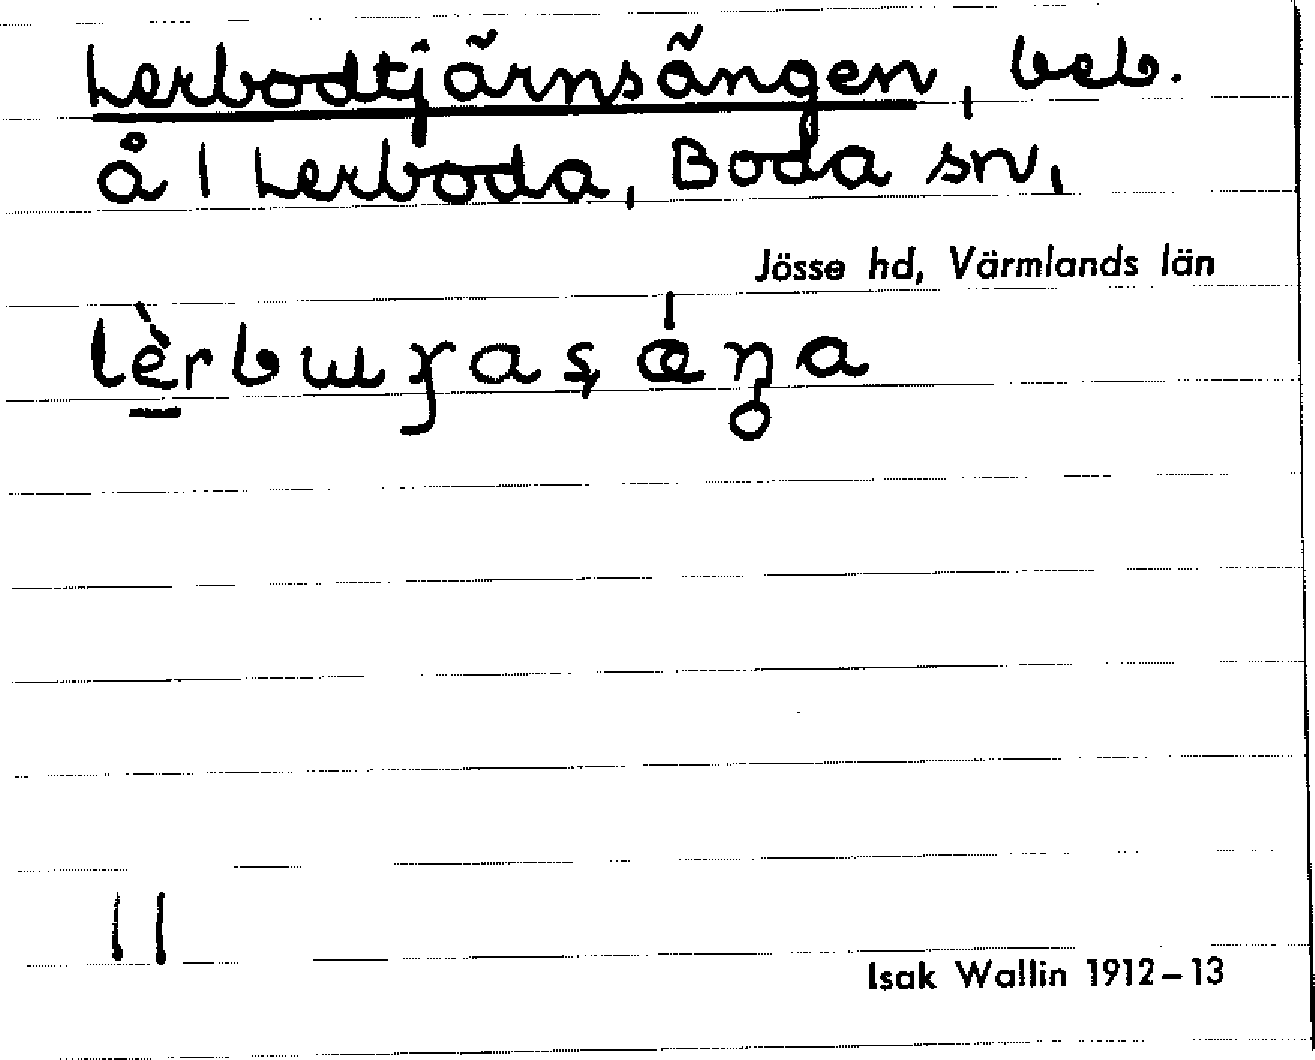 Lerbodtjärnsängen, beb.
å 1 Lerboda, Boda sn,
Jösse hd, Värmlands län
11
Isak Wallin 1912–13